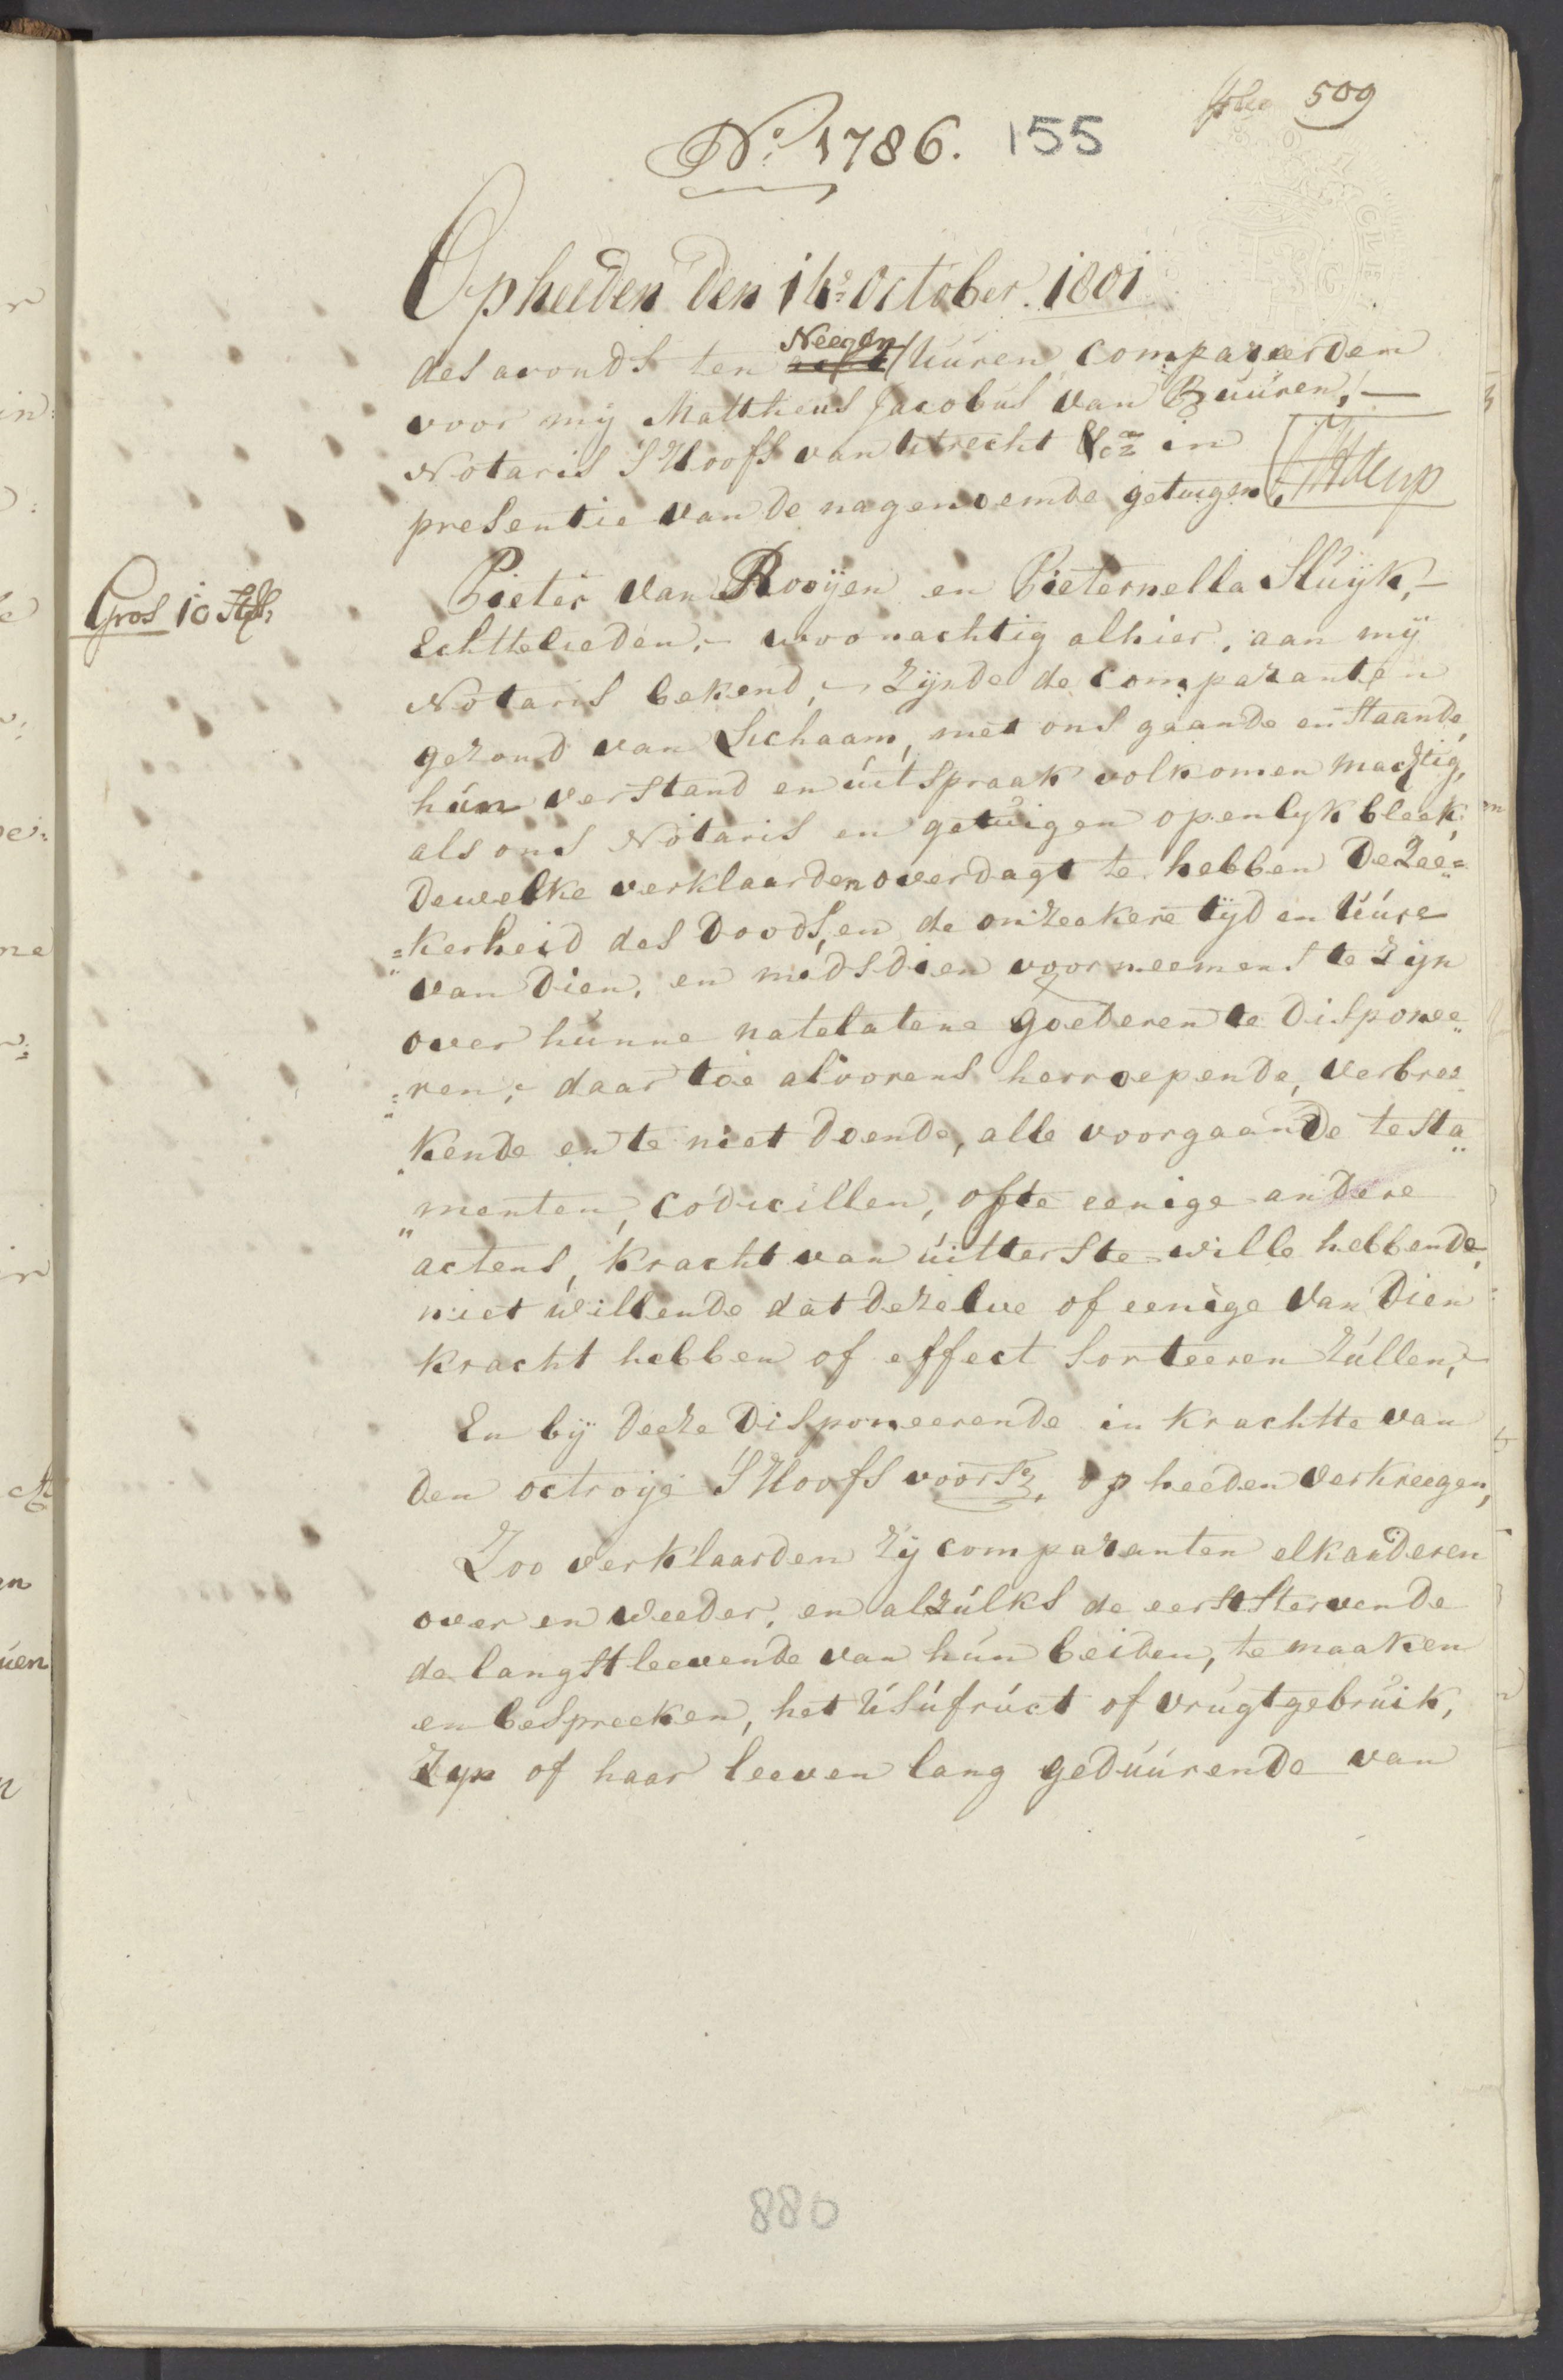 folio 509
No. 1786. 155
Op heeden den 14e October. 1801
des avonds ten Neegen uúren, compareerden
voor mij Mattheus Jacobus van Buúren, —
Notaris S'Hoofs van Utrecht &c=a in
presentie van de nagenoemde getuigen.
Pieter van Rooijen en Pieternella Sluijk, –
Gros 10 St
Echttelieden, – woonachtig alhier, aan mij
Notaris bekend, – Zijnde de comparanten
gezond van Lichaam, met ons gaande en staande,
hún verstand en úitspraak volkomen machtig,
als ons Notaris en getuigen openlijk bleek,
Dewelke verklaarden overdagt te hebben De Zee=
=kerheid des Doods, en de onzeekere tijd en úúre
van Dien, en midsdien voorneemens te Zijn
over húnne natelatene goederen te Disponee„
=ren, daar toe alvoorens herroepende, verbree=
„kende en te niet Doende, alle voorgaande testa„
„menten, codicillen, ofte eenige andere
actens, kracht van úitterste wille hebbende,
niet willende dat dezelve of eenige van Dien
kracht hebben of effect Sorteeren Zúllen, –
En bij Deeze Disponeerende in krachtte van
den octroije S'Hoofs voorsz. op heeden verkreegen,
Zoo verklaarden Zij comparanten elkanderen
over en weeder, en alzúlks de eerststervende
de langstleevende van hún beiden, te maaken
en bespreeken, het úsúfrúct of vrúgtgebrúik,
Zyn of haar leeven lang gedúúrende van
088